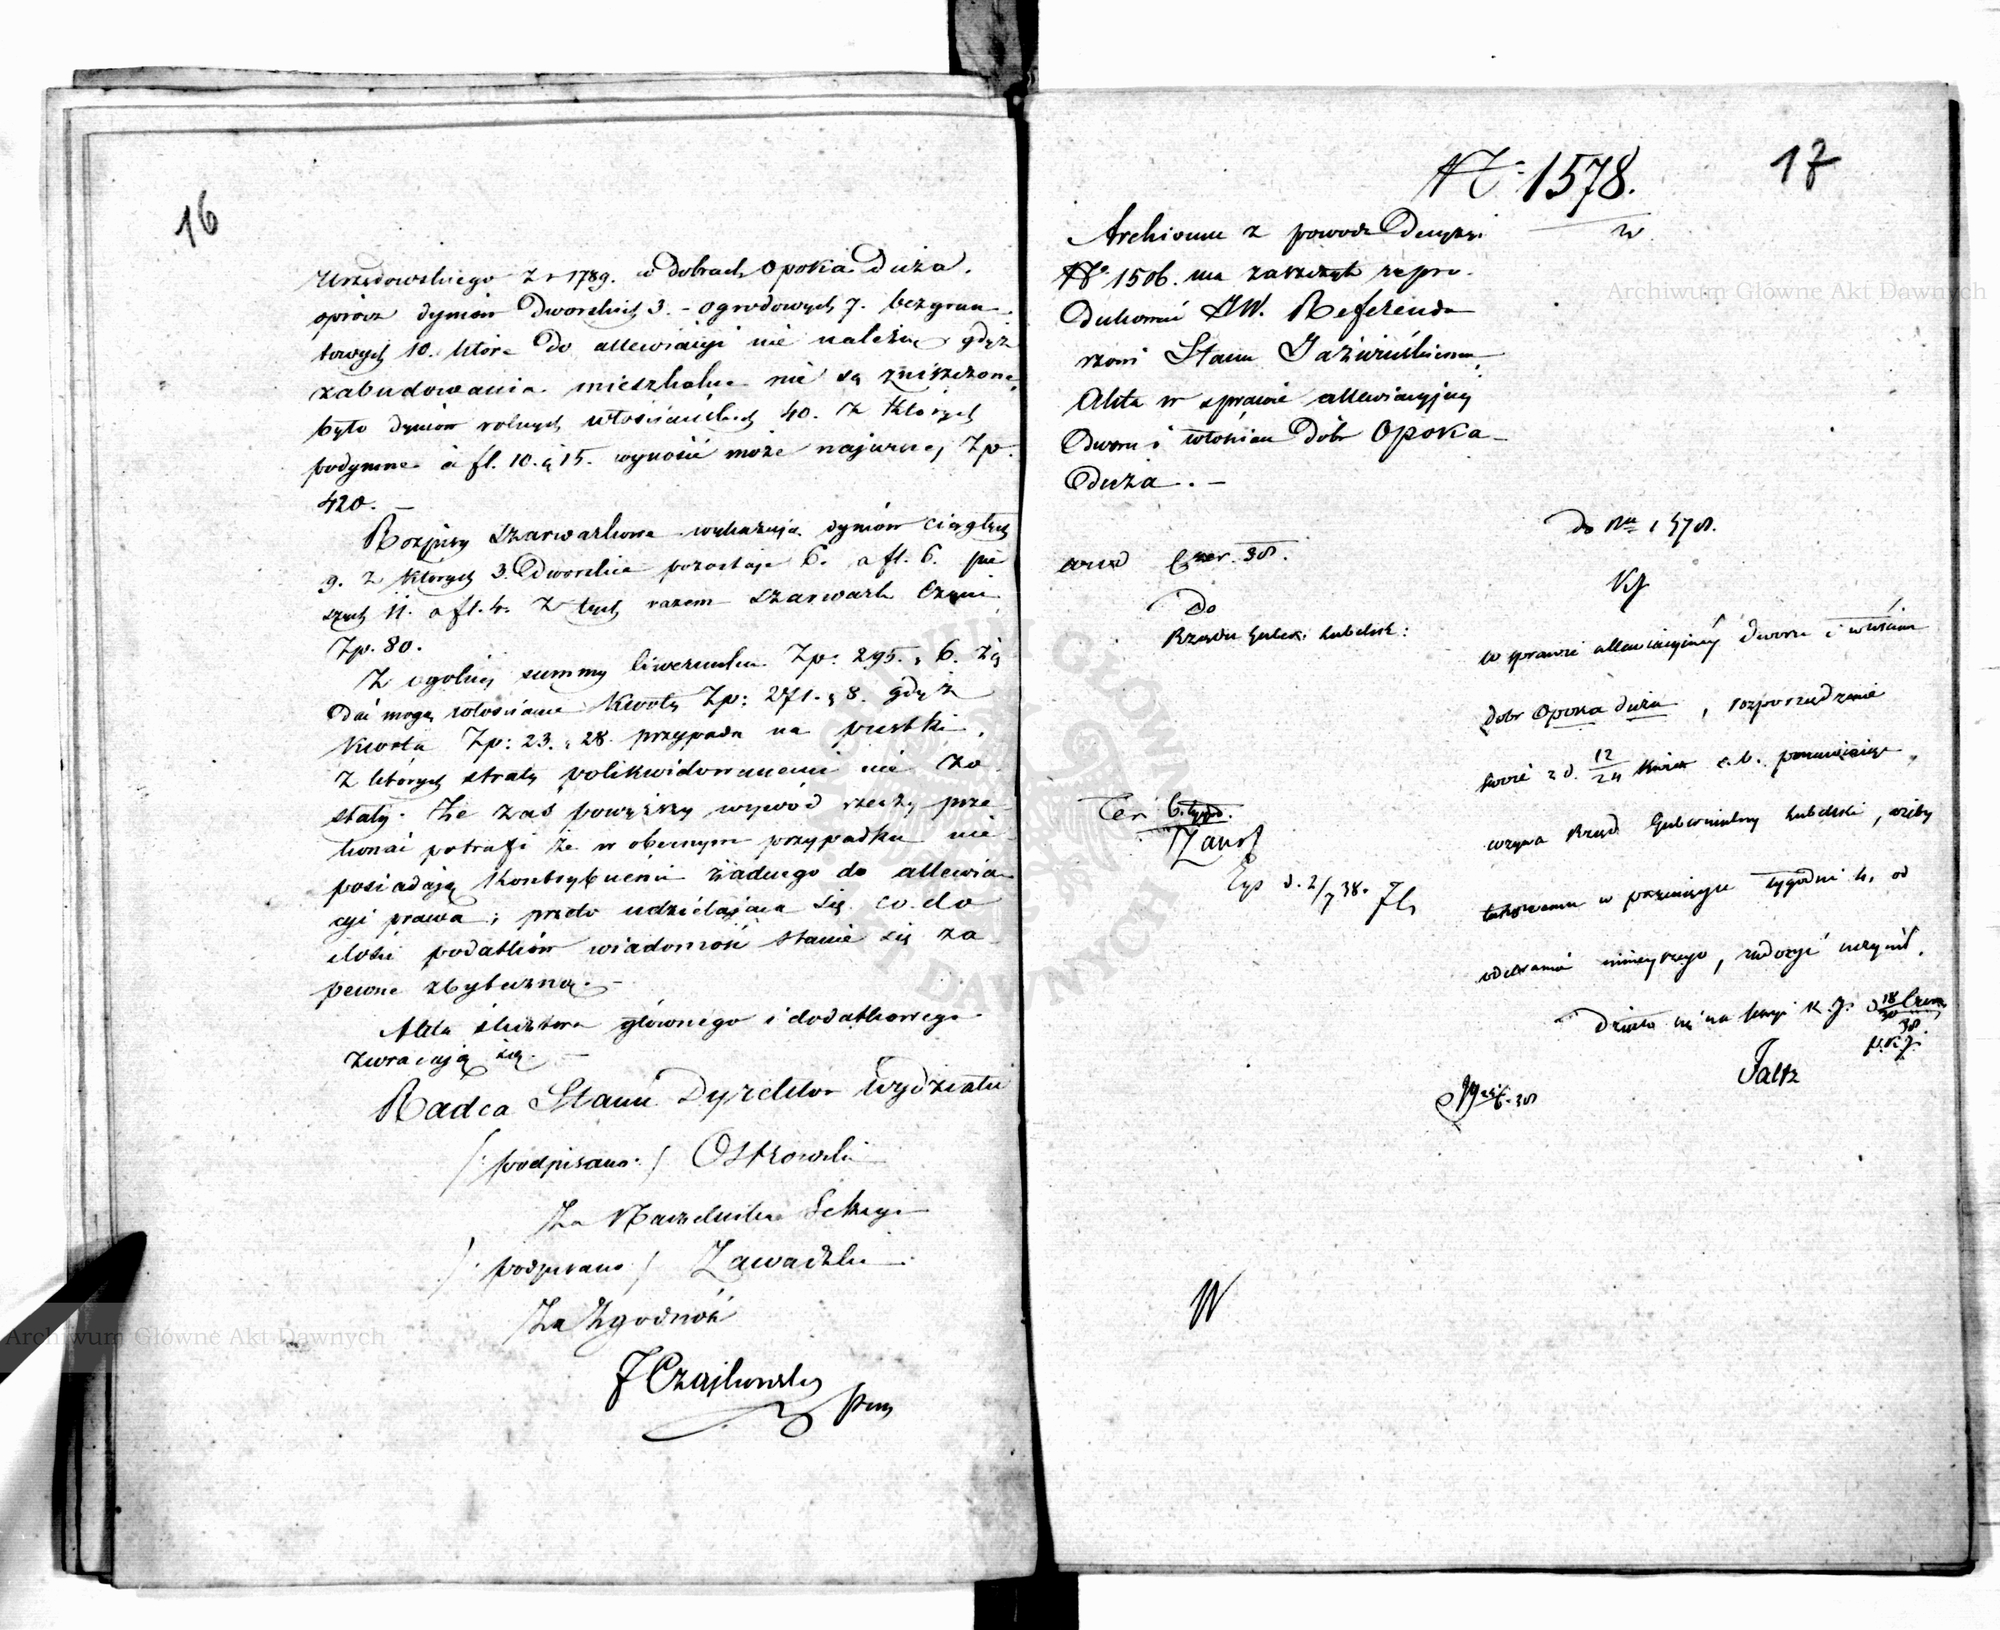 16
Urzędowskiego z r 1789. w dobrach Opoka Duża.
oprócz dymów Dworskich 3. – ogrodowych 7. bezgrun-
towych 10. które do allewiacyi nie należą gdyż
zabudowania mieszkalne nie są zniszczone,
było dymów rolnych włościańskich 40. z których
podymne à fl. 10. g 15. wynosić może najwięcej Zp.
420. –
Rozpisy szarwarkowe wykazują dymów ciągłych
9. z których 3. Dworskie pozostaje 6. a fl. 6. pie
szych 11. a fl. 4. z tych razem szarwark czyni
Zp. 80.
Z ogólnej summy liwerunku Zp: 295. g 6. żą
dać mogą włościanie kwotę Zp: 271. g 8. gdyż
kwota Zp: 23. g 28. przypada na pustki,
z których straty polikwidowanemi nie zo
stały. Że zaś powyższy wywód rzeczy prze
konać potrafi że w obecnym przypadku nie
posiadają kontrybuenci żadnego do allewia
cyi prawa; przeto udzielająca się co do
ilości podatków wiadomość stanie się za
pewne zbyteczną. –
Akta śledztwa głównego i dodatkowego
zwracają się. –
Radca Stanu Dyrektor Wydziału
/: podpisano :/ Ostrowski
Za Naczelnika Sekcyi
/: podpisano :/ Zawadzki
Za Zgodność
J Czajkowski
17
N° 1578.
w
Archiwum z powodu Decyzyi
N° 1506. ma zaszczyt repro-
dukować JW. Referenda
rzowi Stanu Jaźwińskiemu
Akta w sprawie allewiacyjnej
Dworu i włościan Dóbr Opoka
Duża. –
do Nru 1578.
Czer. 38.
KJ
Do
Rządu Gubern: Lubelsk:
w sprawie allewiacyjnej dworu i włościan
dóbr Opoka duża, rozporządzenie
swoie z d. 12/24 kwiet. r. b. ponawiając,
wzywa Rząd Gubernialny Lubelski, ażeby
takowemu w przeciągu tygodni 6, od
odebrania niniejszego, zadosyć uczynił.
Działo się na sessyi K. J. d 18/30 Czerw.
38.
Ter. 6. tygod.
Exp d. 2/7 38.
Faltz
W
Archiwum Główne Akt Dawnych
Archiwum Główne Akt Dawnych
ARCHIWUM GŁÓWNE AKT DAWNYCH